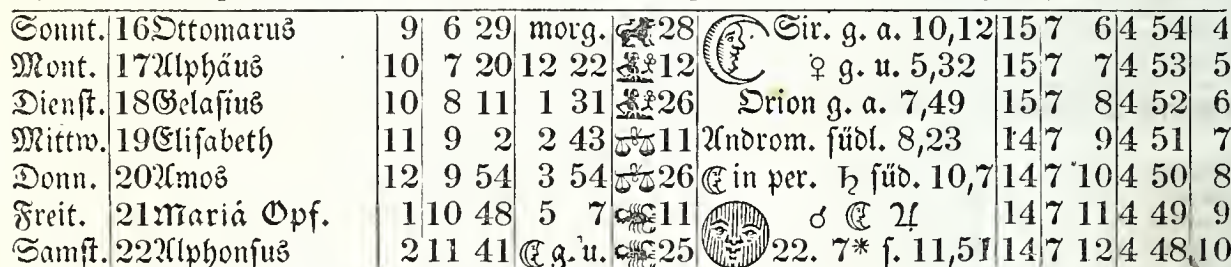 Sonnt. 16 Ottomarus 9 6 29 morg. 28 Sir. g. a. 10,12 15 7 6 4 54 4
Mont. 17 Alphäus 10 7 20 12 22 12 ♀ g. u. 5,32 15 7 7 4 53 5
Dienſt. 18 Gelaſius 10 8 11 1 31 26 Orion g. a. 7,49 15 7 8 4 52 6
Mittw. 19 Eliſabeth 11 9 2 2 43 ♎ 11 Androm. ſüdl. 8,23 14 7 9 4 51 7
Donn. 20 Amos 12 9 54 3 54 ♎ 26 ☾ in per. ♄ ſüd. 10,7 14 7 10 4 50 8
Freit. 21 Mariá Opf. 1 10 48 5 7 11 ☌ ☾ ♃ 14 7 11 4 49 9
Samſt. 22 Alphonſus 2 11 41 ☾ g. u. 25 22. 7* ſ. 11,51 14 7 12 4 48 10